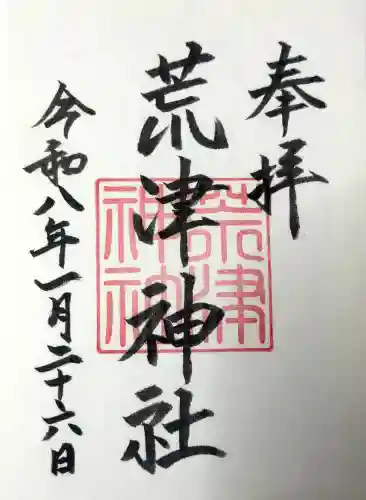 奉拝
荒津神社
荒津神社
今和八年一月二十六日